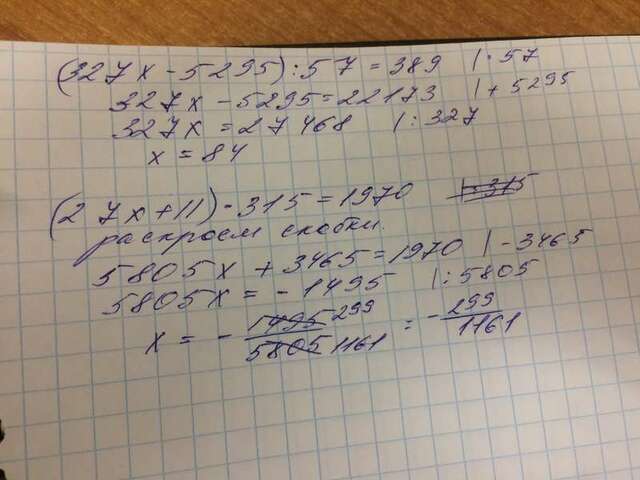 (327x - 5295) : 57 = 389 | · 57
327x - 5295 = 22173 | + 5295
327x = 27468 | : 327
x = 84
(27x + 11) · 315 = 1970
раскроем скобки.
5805x + 3465 = 1970 | - 3465
5805x = - 1495 | : 5805
x = - 1495 299 / 5805 1161 = - 299 / 1161